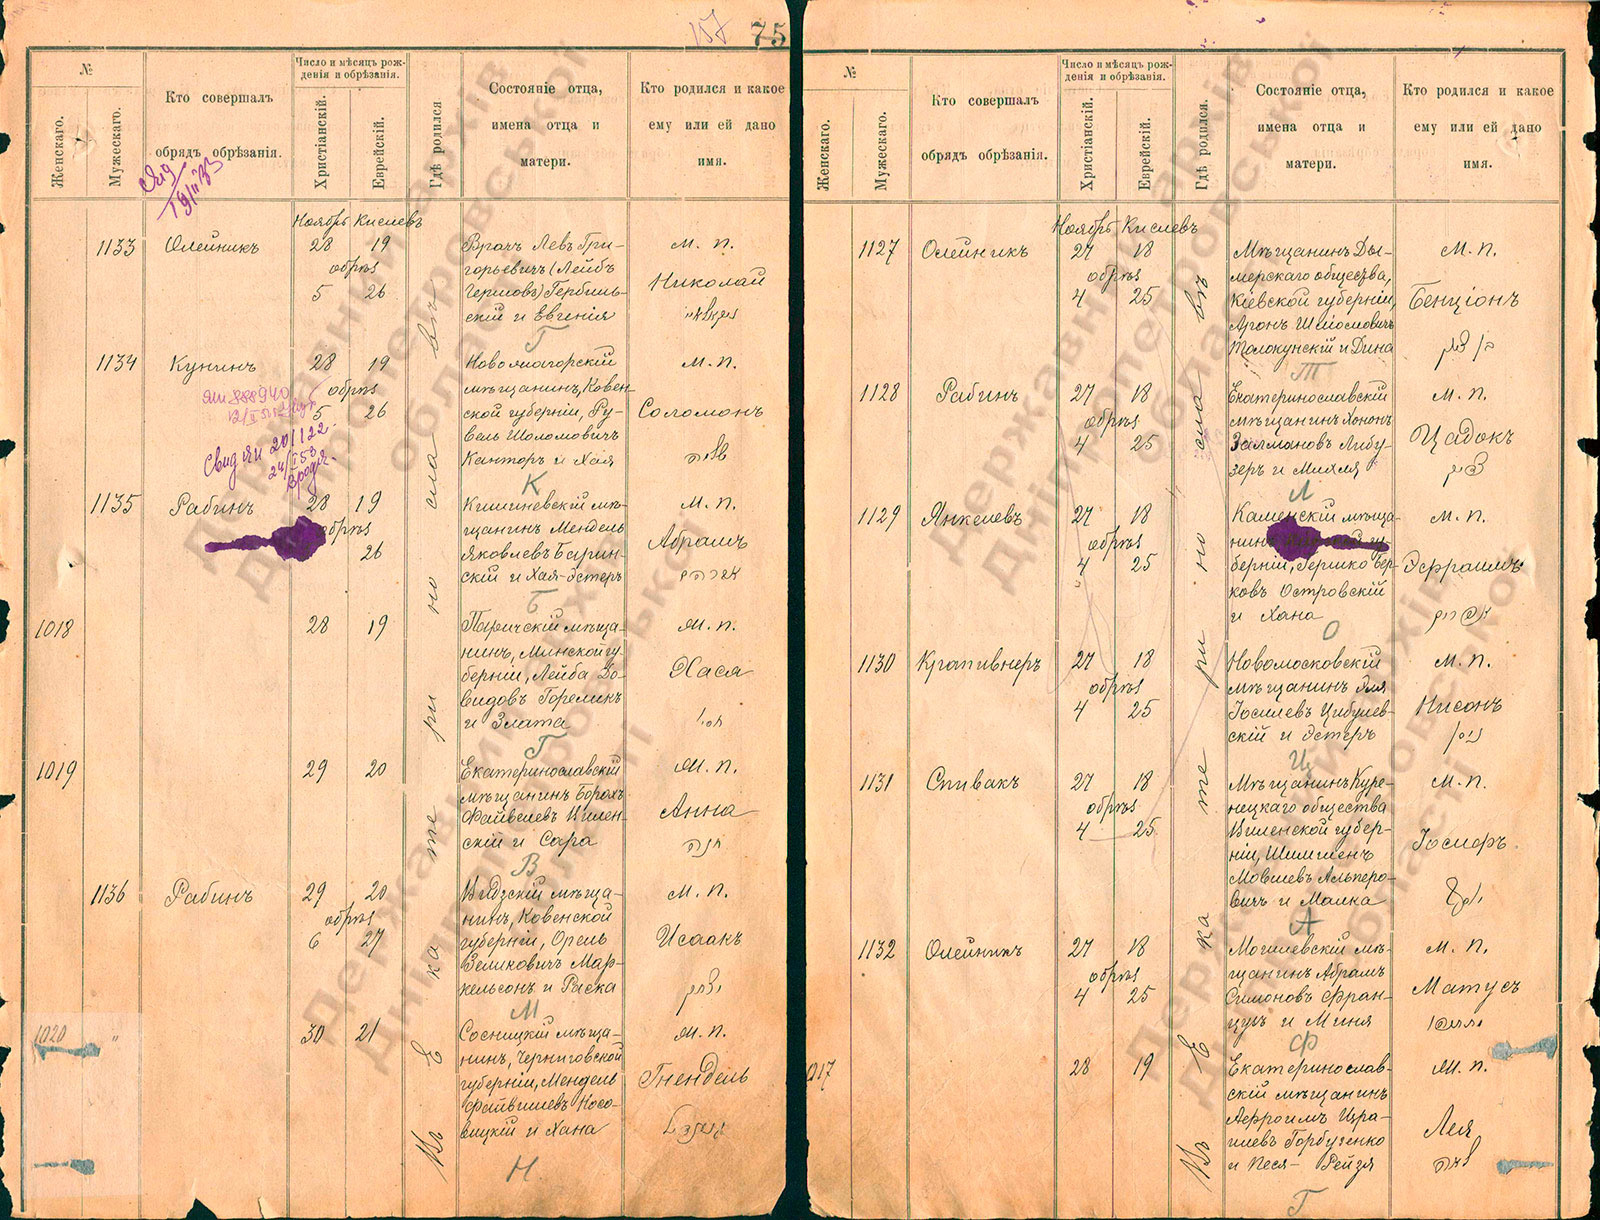 157 75
№
Женскаго.
Мужескаго.
Кто совершалъ
обрядъ обрѣзанія.
Число и мѣсяцъ рож-
денія и обрѣзанія.
Христіанскій.
Еврейскій.
Гдѣ родился
Состояніе отца,
имена отца и
матери.
Кто родился и какое
ему или ей дано
имя.
Ноябрь Кислевъ
Въ Екатеринославѣ
1133 Олейникъ 28 19
обрѣз
5 26
Врачъ Левъ Гри-
горьевичъ (Лейбъ
Гершовъ) Гербиль-
скій и Евгенія
М. п.
Николай
Г
1134 Кунинъ 28 19
обрѣз
5 26
Новожагорскій
мѣщанинъ, Ковен-
ской губерніи, Ру-
вель Шоломовичъ
Канторъ и Хая
М. п.
Соломонъ
К
1135 Рабинъ 28 19
обрѣз
26
Кишиневскій мѣ-
щанинъ Мендель
Яковлевъ Барин-
скій и Хая-Эстеръ
М. п.
Абрамъ
Б
1018 28 19
Паричскій мѣща-
нинъ, Минской гу-
берніи, Лейба До-
видовъ Горелик
и Злата
Ж. п.
Хася
Г
1019 29 20
Екатеринославскій
мѣщанинъ Борохъ
Файвелевъ Вилен-
скій и Сара
Ж. п.
Анна
חנה
В
1136 Рабинъ 29 20
обрѣз
6 27
Видзскій мѣща-
нинъ, Ковенской
губерніи, Орель
Зеликовичъ Мар-
кельсонъ и Раска
М. п.
Исаакъ
יצחק
М
1020 30 21
Сосницкій мѣща-
нинъ, Черниговской
губерніи, Мендель
Файвишевъ Носо-
вицкій и Хана
Ж. п.
Гнендель
Н
№
Женскаго.
Мужескаго.
Кто совершалъ
обрядъ обрѣзанія.
Число и мѣсяцъ рож-
денія и обрѣзанія.
Христіанскій.
Еврейскій.
Гдѣ родился.
Состояніе отца,
имена отца и
матери.
Кто родился и какое
ему или ей дано
имя.
Ноябрь Кислевъ
Въ Екатеринославѣ
1127 Олейникъ 27 18
обрѣз
4 25
Мѣщанинъ Ды-
мерскаго общества,
Кіевской губерніи,
Аронъ Шліомовичъ
Толокунскій и Дина
М. п.
Бенціонъ
בן ציון
Т
1128 Рабинъ 27 18
обрѣз
4 25
Екатеринославскій
мѣщанинъ Хононъ
Залмановъ Либу-
зеръ и Михля
М. п.
Цадокъ
צדוק
Л
1129 Янкелевъ 27 18
обрѣз
4 25
Каменскій мѣща-
нинъ
берніи, Гершко Бер-
ковъ Островскій
и Хана
М. п.
Эфраимъ
אפרים
О
1130 Крапивнеръ 27 18
обрѣз
4 25
Новомосковскій
мѣщанинъ Эля
Іосилевъ Цибулев-
скій и Эстеръ
М. п.
Нисонъ
ניסן
Ц
1131 Спивакъ 27 18
обрѣз
4 25
Мѣщанинъ Куре-
нецкаго общества
Виленской губер-
ніи, Шлименъ
Мовшевъ Альперо-
вичъ и Малка
М. п.
Іосифъ
А
1132 Олейникъ 27 18
обрѣз
4 25
Могилевскій мѣ-
щанинъ Абрамъ
Симоновъ Фран-
цузъ и Миня
М. п.
Матусъ
Ф
28 19
Екатеринослав-
скій мѣщанинъ
Аефроимъ Изра-
илевъ Горбузенко
и Песя-Рейзя
Ж. п.
Лея
לאה
Г
Державний архів
Дніпропетровської
області